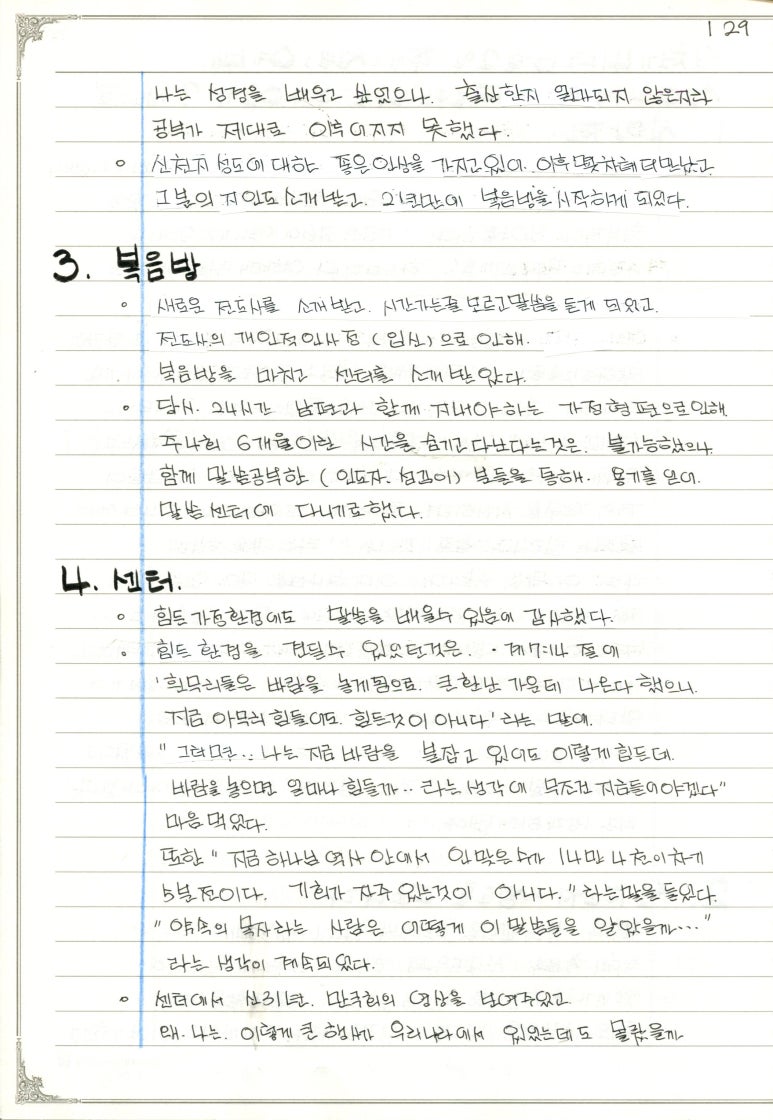 129
나는 성경을 배우고 싶었으나. 출산한지 얼마되지 않은지라
공부가 제대로 이루어지지 못했다.
○ 신천지 성도에 대한 좋은인상을 가지고있어. 이후 몇차례 더만났고
그분의 지인도 소개받고. 21칸만에 복음방을 시작하게 되었다.
3. 복음방
○ 새로운 전도사를 소개받고. 시간가는줄 모르고말씀을 듣게 되었고.
전도사의 개인적인사정 (임신)으로 인해.
복음방을 마치고 센터를 소개 받았다.
○ 당시. 24시간 남편과 함께 지내야하는 가정형편으로인해
주4회 6개월이란 시간을 숨기고다닌다는것은. 불가능했으나.
함께 말씀공부한 (인도자. 섬김이) 분들을 통해. 용기를 얻어.
말씀 센터에 다니기로했다.
4. 센터.
○ 힘든가정환경에도 말씀을 배울수 있음에 감사했다.
○ 힘든 환경을 견딜수 있었던것은. · 계7:14 절에
'흰무리들은 바람을 놓게됨으로. 큰환난 가운데 나온다 했으니.
지금 아무리 힘들어도. 힘든것이 아니다' 라는 말에.
" 그러면.. 나는 지금 바람을 붙잡고 있어도 이렇게 힘든데.
바람을 놓으면 얼마나 힘들까.. 라는 생각에 무조건 지금들어야겠다"
마음 먹었다.
또한 " 지금 하나님 역사 안에서 인맞은 수가 14만 4천이차기
5분 전이다. 기회가 자주 있는것이 아니다." 라는말을 들었다.
" 약속의 목자라는 사람은 어떻게 이 말씀들을 알았을까..."
라는 생각이 계속되었다.
○ 센터에서 신기한. 만국회의 영상을 보여주었고.
왜. 나는. 이렇게 큰 행사가 우리나라에서 있었는데도 몰랐을까